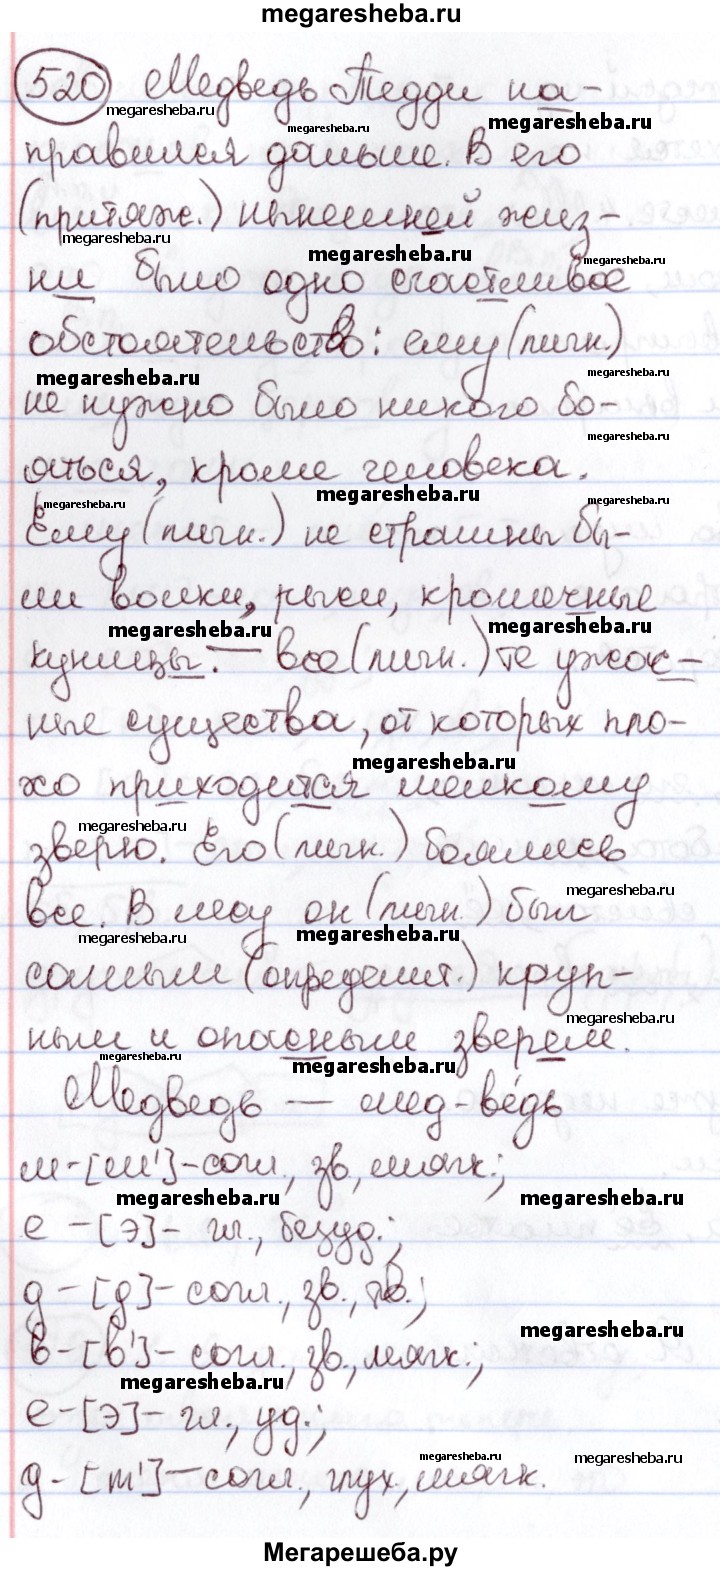 megaresheba.ru
520 Медведь Тедди на-
megaresheba.ru megaresheba.ru megaresheba.ru
правился дальше. В его
(притяж.) нынешней жиз-
megaresheba.ru megaresheba.ru megaresheba.ru
ни было одно счастливое
обстоятельство: ему (личн.)
megaresheba.ru megaresheba.ru
не нужно было никого бо-
megaresheba.ru
яться, кроме человека.
megaresheba.ru megaresheba.ru megaresheba.ru
Ему (личн.) не страшны бы-
ли волки, рыси, кромечные
megaresheba.ru megaresheba.ru
куницы – все (личн.) те ужас-
ные существа, от которых пло-
megaresheba.ru
хо приходится мелкому
megaresheba.ru
зверю. Его (личн.) боялись
megaresheba.ru
все. В лесу он (личн.) был
megaresheba.ru megaresheba.ru
самым (определит.) круп-
megaresheba.ru
ным и опасным зверем.
megaresheba.ru megaresheba.ru
Медведь — мед-ве́дь
м-[м']-согл., зв., мягк.;
megaresheba.ru megaresheba.ru
е-[э]- гл., безуд.;
д-[д]-согл., зв., тв.;
megaresheba.ru
в-[в']-согл., зв., мягк.;
megaresheba.ru
е-[э]-гл., уд.;
megaresheba.ru megaresheba.ru
д-[т']-согл., глух., мягк.
Мегарешеба.ру